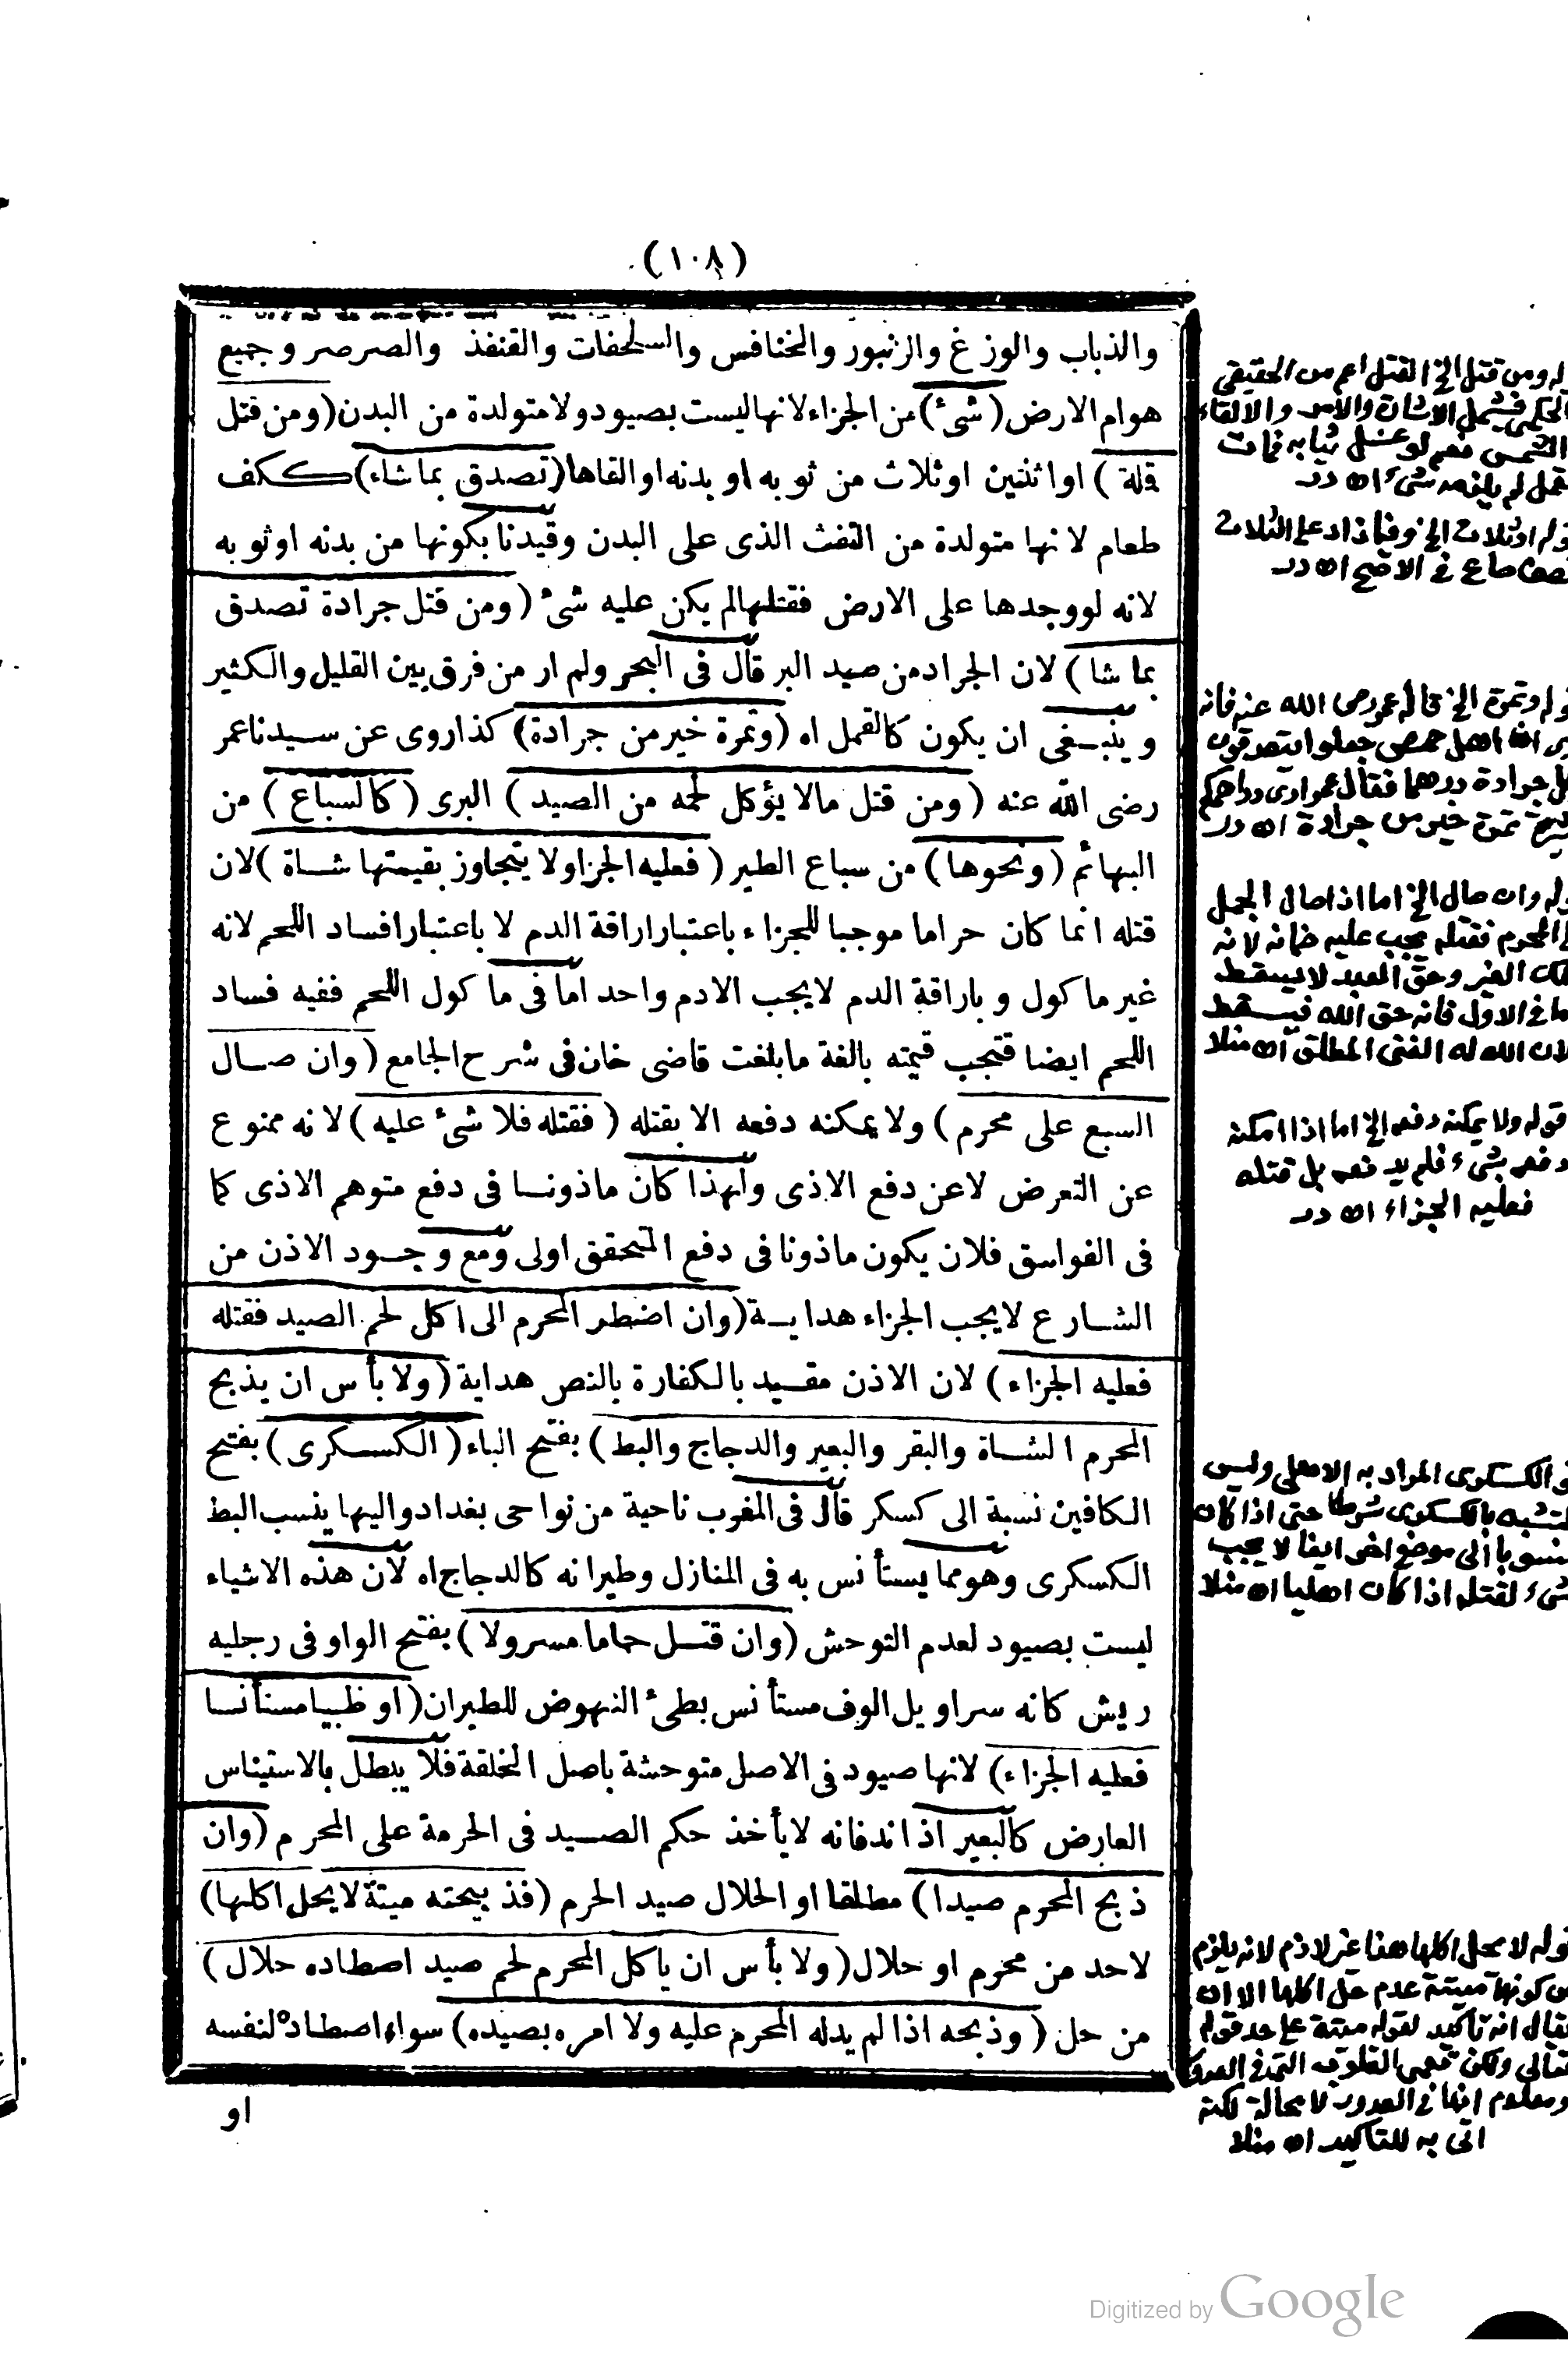 (١٠٨)
والذباب والوزغ والزنبور والخنافس والسلحفات والقنفذ والصرصر وجميع
هوام الارض (شئ) من الجزاء لانها ليست بصيود ولا متولدة من البدن (ومن قتل
قلة) او اثنتين او ثلاث من ثوبه او بدنه او القاها (تصدق بما شاء) ككف
طعام لانها متولدة من التفث الذى على البدن وقيدنا بكونها من بدنه او ثوبه
لانه لو وجدها على الارض فقتلها لم يكن عليه شئ (ومن قتل جرادة تصدق
بما شا) لان الجراد من صيد البر قال فى البحر ولم ار من فرق بين القليل والكثير
وينبغى ان يكون كالقمل اه (وتمرة خير من جرادة) كذا روى عن سيدنا عمر
رضى الله عنه (ومن قتل مالا يؤكل لحمه من الصيد) البرى (كالسباع) من
البهائم (ونحوها) من سباع الطير (فعليه الجزا ولا يتجاوز بقيمتها شاة) لان
قتله انما كان حراما موجبا للجزاء باعتبار اراقة الدم لا باعتبار افساد اللحم لانه
غير ماكول وباراقة الدم لا يجب الادم واحد اما فى ماكول اللحم ففيه فساد
اللحم ايضا فتجب قيمته بالغة مابلغت قاضى خان فى شرح الجامع (وان صال
السبع على محرم) ولا يمكنه دفعه الا بقتله (فقتله فلا شئ عليه) لانه ممنوع
عن التعرض لا عن دفع الاذى ولهذا كان ماذونا فى دفع متوهم الاذى كما
فى الفواسق فلان يكون ماذونا فى دفع المتحقق اولى ومع وجود الاذن من
الشارع لا يجب الجزاء هداية (وان اضطر المحرم الى اكل لحم الصيد فقتله
فعليه الجزاء) لان الاذن مقيد بالكفارة بالنص هداية (ولا بأس ان يذبح
المحرم الشاة والبقر والبعير والدجاج والبط) بفتح الباء (الكسكرى) بفتح
الكافين نسبة الى كسكر قال فى المغرب ناحية من نواحى بغداد واليها ينسب البط
الكسكرى وهو مما يستأنس به فى المنازل وطيرانه كالدجاج اه لان هذه الاشياء
ليست بصيود لعدم التوحش (وان قتل حماما مسرولا) بفتح الواو فى رجليه
ريش كانه سراويل الوف مستأنس بطئ النهوض للطيران (او ظبيا مستأنسا
فعليه الجزاء) لانها صيود فى الاصل متوحشة باصل الخلقة فلا يبطل بالاستيناس
العارض كالبعير اذا ند فانه لا يأخذ حكم الصيد فى الحرمة على المحرم (وان
ذبح المحرم صيدا) مطلقا او الحلال صيد الحرم (فذبيحته ميتة لا يحل اكلها)
لاحد من محرم او حلال (ولا بأس ان ياكل المحرم لحم صيد اصطاده حلال)
من حل (وذبحه اذا لم يدله المحرم عليه ولا امره بصيده) سواء اصطاده لنفسه
او
له ومن قتل الخ القتل اعم من الحقيقى
الشمس نعم لو غسل ثيابه فمات
قمل لم يلزمه شئ اه در
وله او ثلاث الخ وفيما زاد على الثلاث
نصف صاع فى الاصح اه در
وله وتمرة الخ قاله عمر رضى الله عنه فانه
اهل حمص جعلوا يتصدقون
كل جرادة بدرهم فقال عمر ارى دراهمكم
كثيرة تمرة خير من جرادة اه در
وله وان صال الخ اما اذا صال الجمل
على المحرم فقتله يجب عليه ضمانه لانه
ملك الغير وحق العبد لا يسقط
اما فى الاول فانه حق الله فيسقط
لان الله له الغنى المطلق اه منلا
قوله ولا يمكنه دفعه الخ اما اذا امكنه
دفعه بشئ فلم يدفعه بل قتله
فعليه الجزاء اه در
الكسكرى المراد به الاهلى وليس
بالكسكرى شرطا حتى اذا كان
منسوبا الى موضع اخر ايضا لا يجب
شئ لقتله اذا كان اهليا اه منلا
قوله لا يحل اكلها هذا غير لازم لانه يلزم
من كونها ميتة عدم حل اكلها الا ان
يقال انه تاكيد لقوله ميتة على حد قوله
تعالى ولكن تعمى القلوب التى فى الصدور
ومعلوم انها فى الصدور لا محالة لكنه
اتى به للتاكيد اه منلا
Digitized by Google